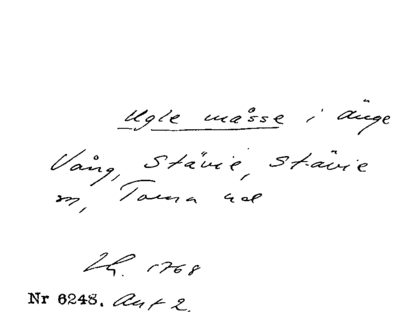 Ugle måsse i änge
Vång, Stävie, Stävie
m, Torna hd
Lh. 1768
Nr 6248. Ant 2.